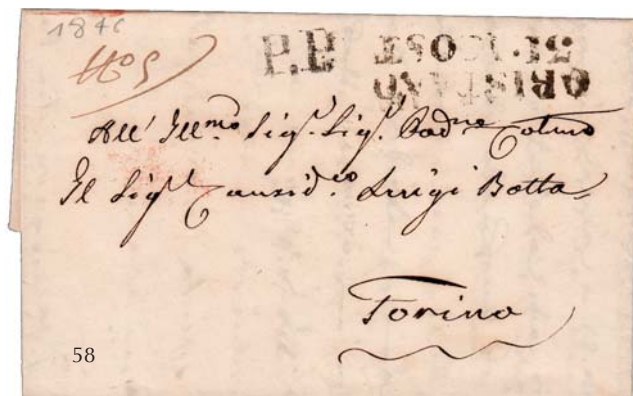 1846
P.P.
ORISTANO
31. AGOST
All' Ill.mo Sig.r Sig.r Pad.ne Col.mo
Il Sig.r Causid.co Luigi Botta
Torino
58